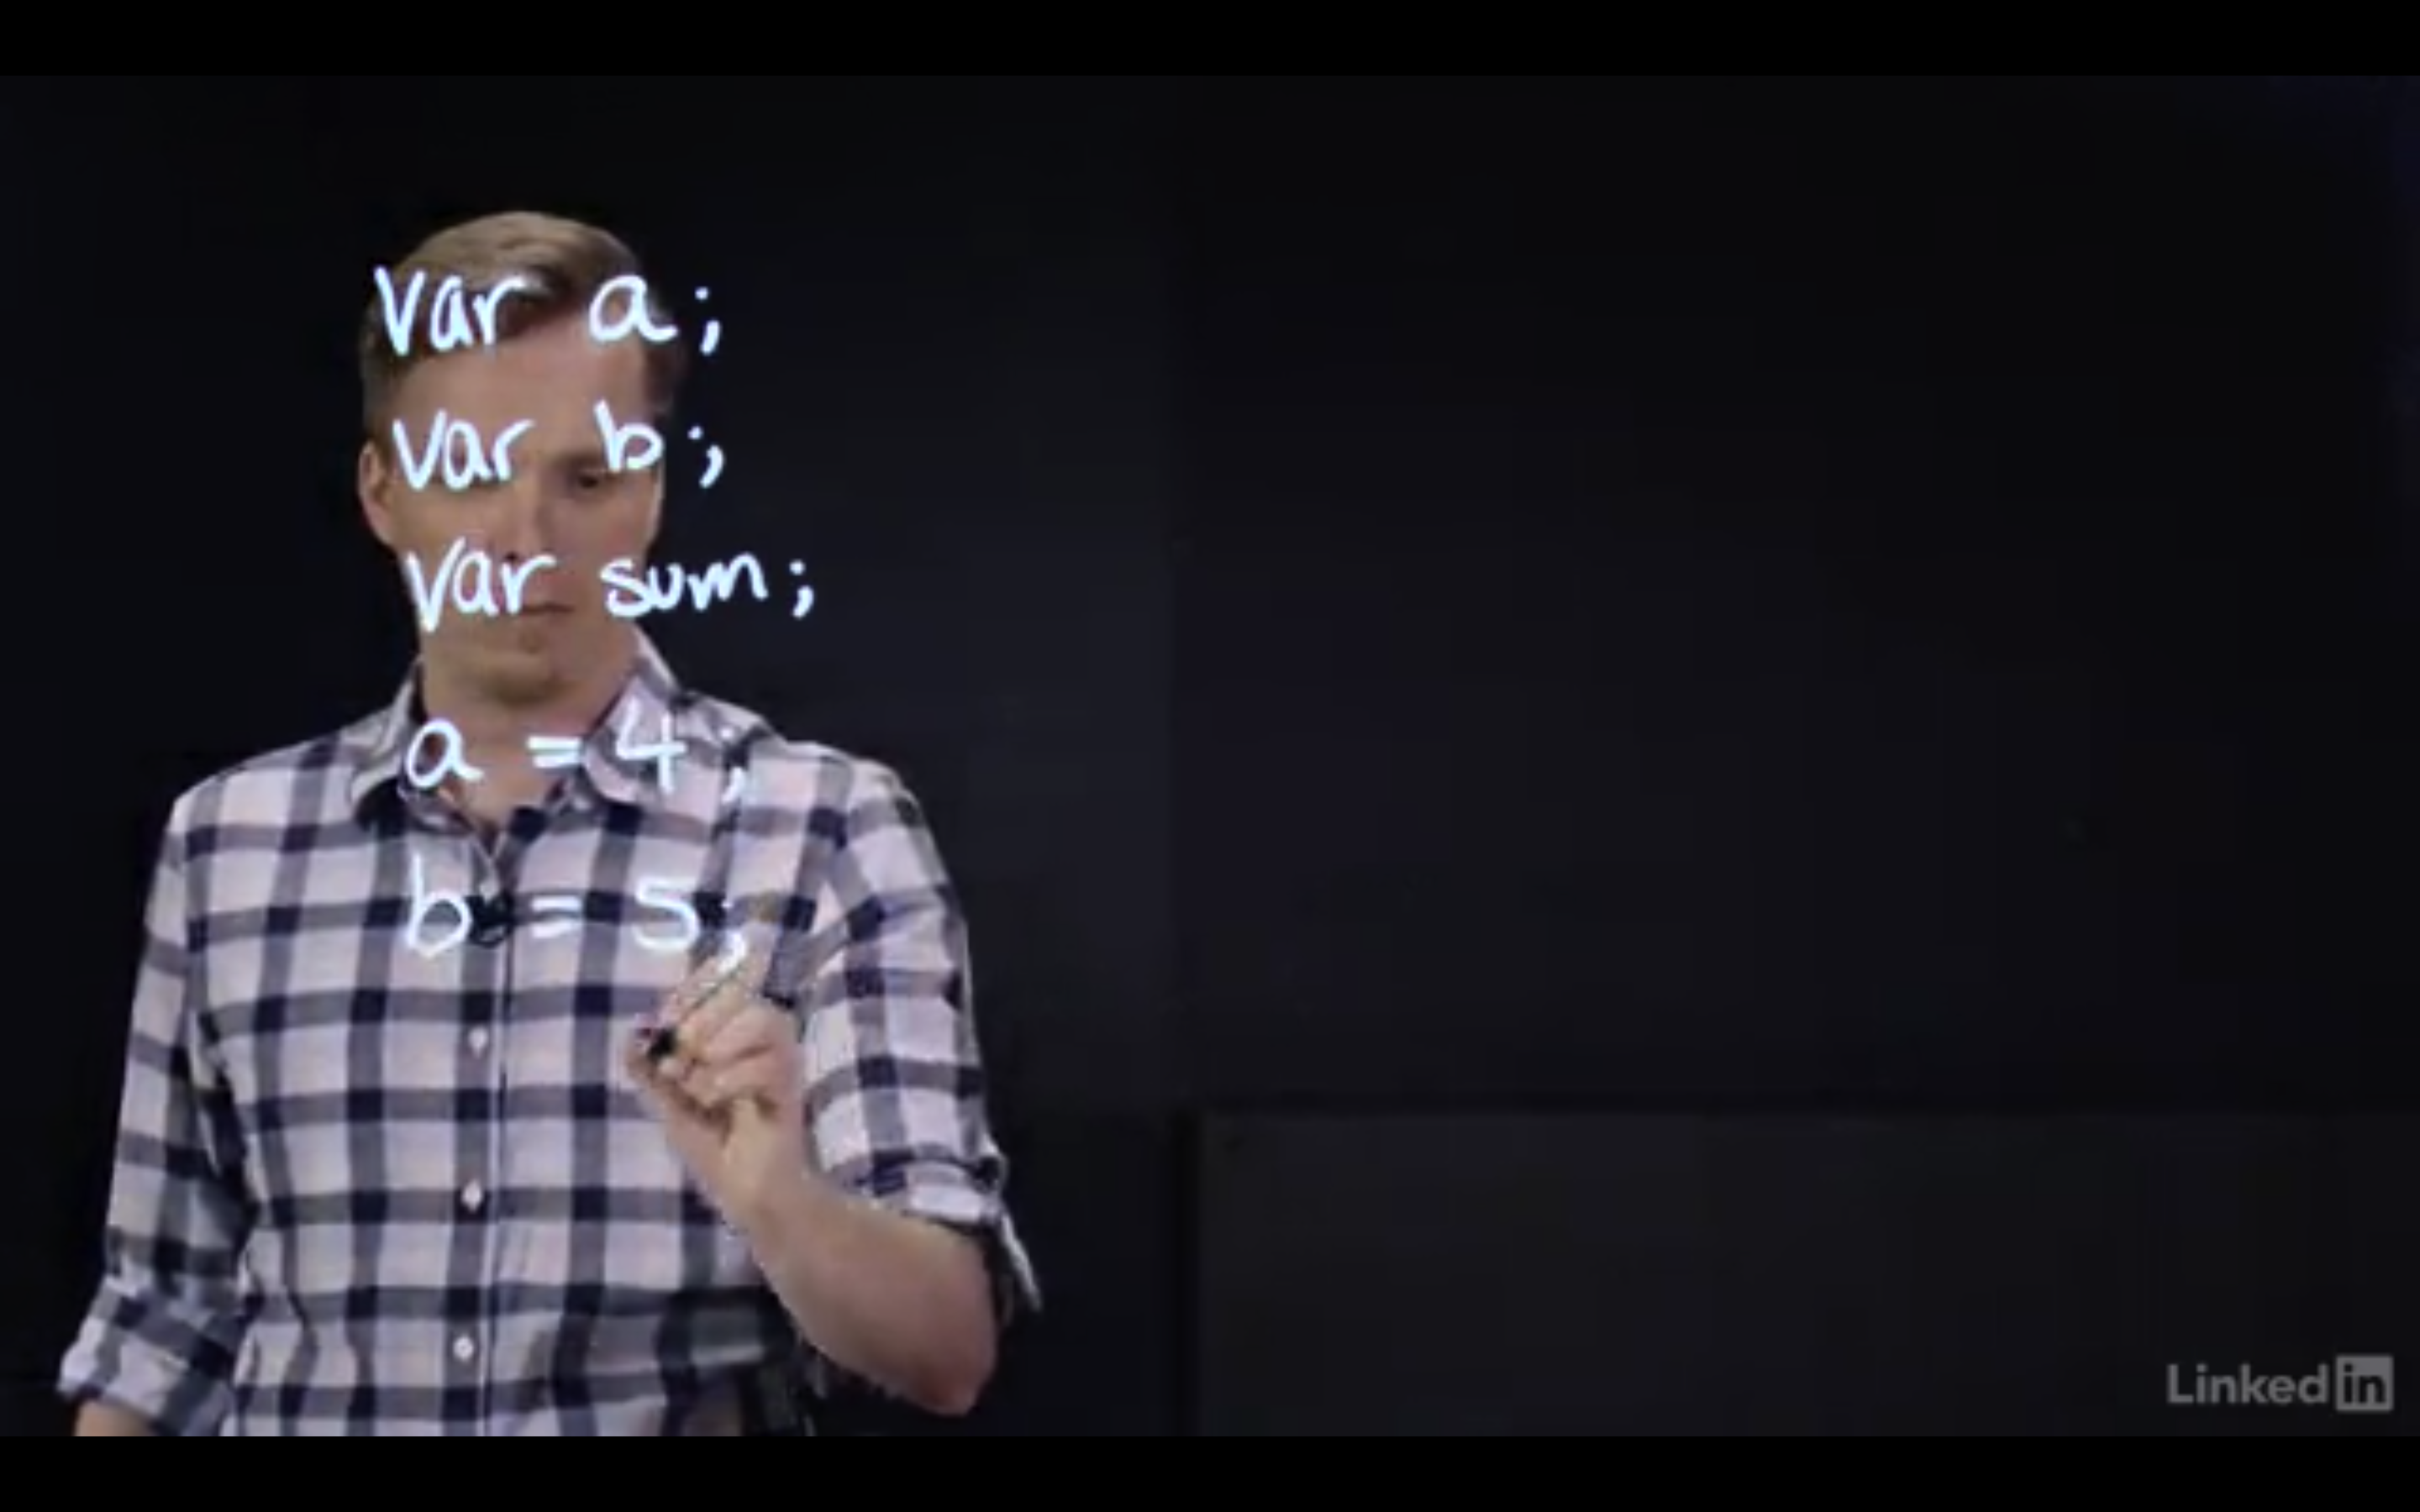 var a;
var b;
var sum;
a = 4;
b = 5;
Linked in